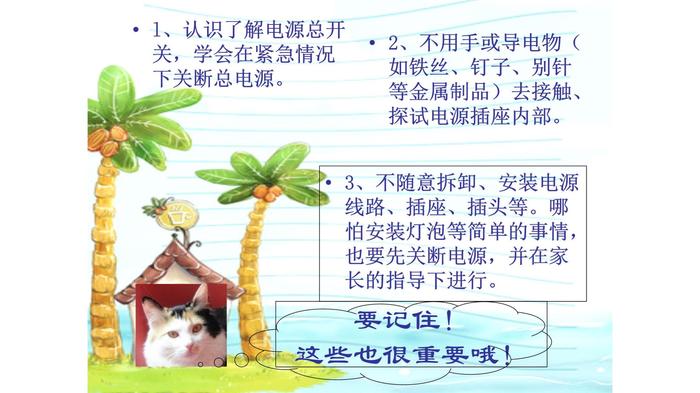 • 1、认识了解电源总开
关，学会在紧急情况
下关断总电源。
• 2、不用手或导电物（
如铁丝、钉子、别针
等金属制品）去接触、
探试电源插座内部。
• 3、不随意拆卸、安装电源
线路、插座、插头等。哪
怕安装灯泡等简单的事情，
也要先关断电源，并在家
长的指导下进行。
要记住！
这些也很重要哦！